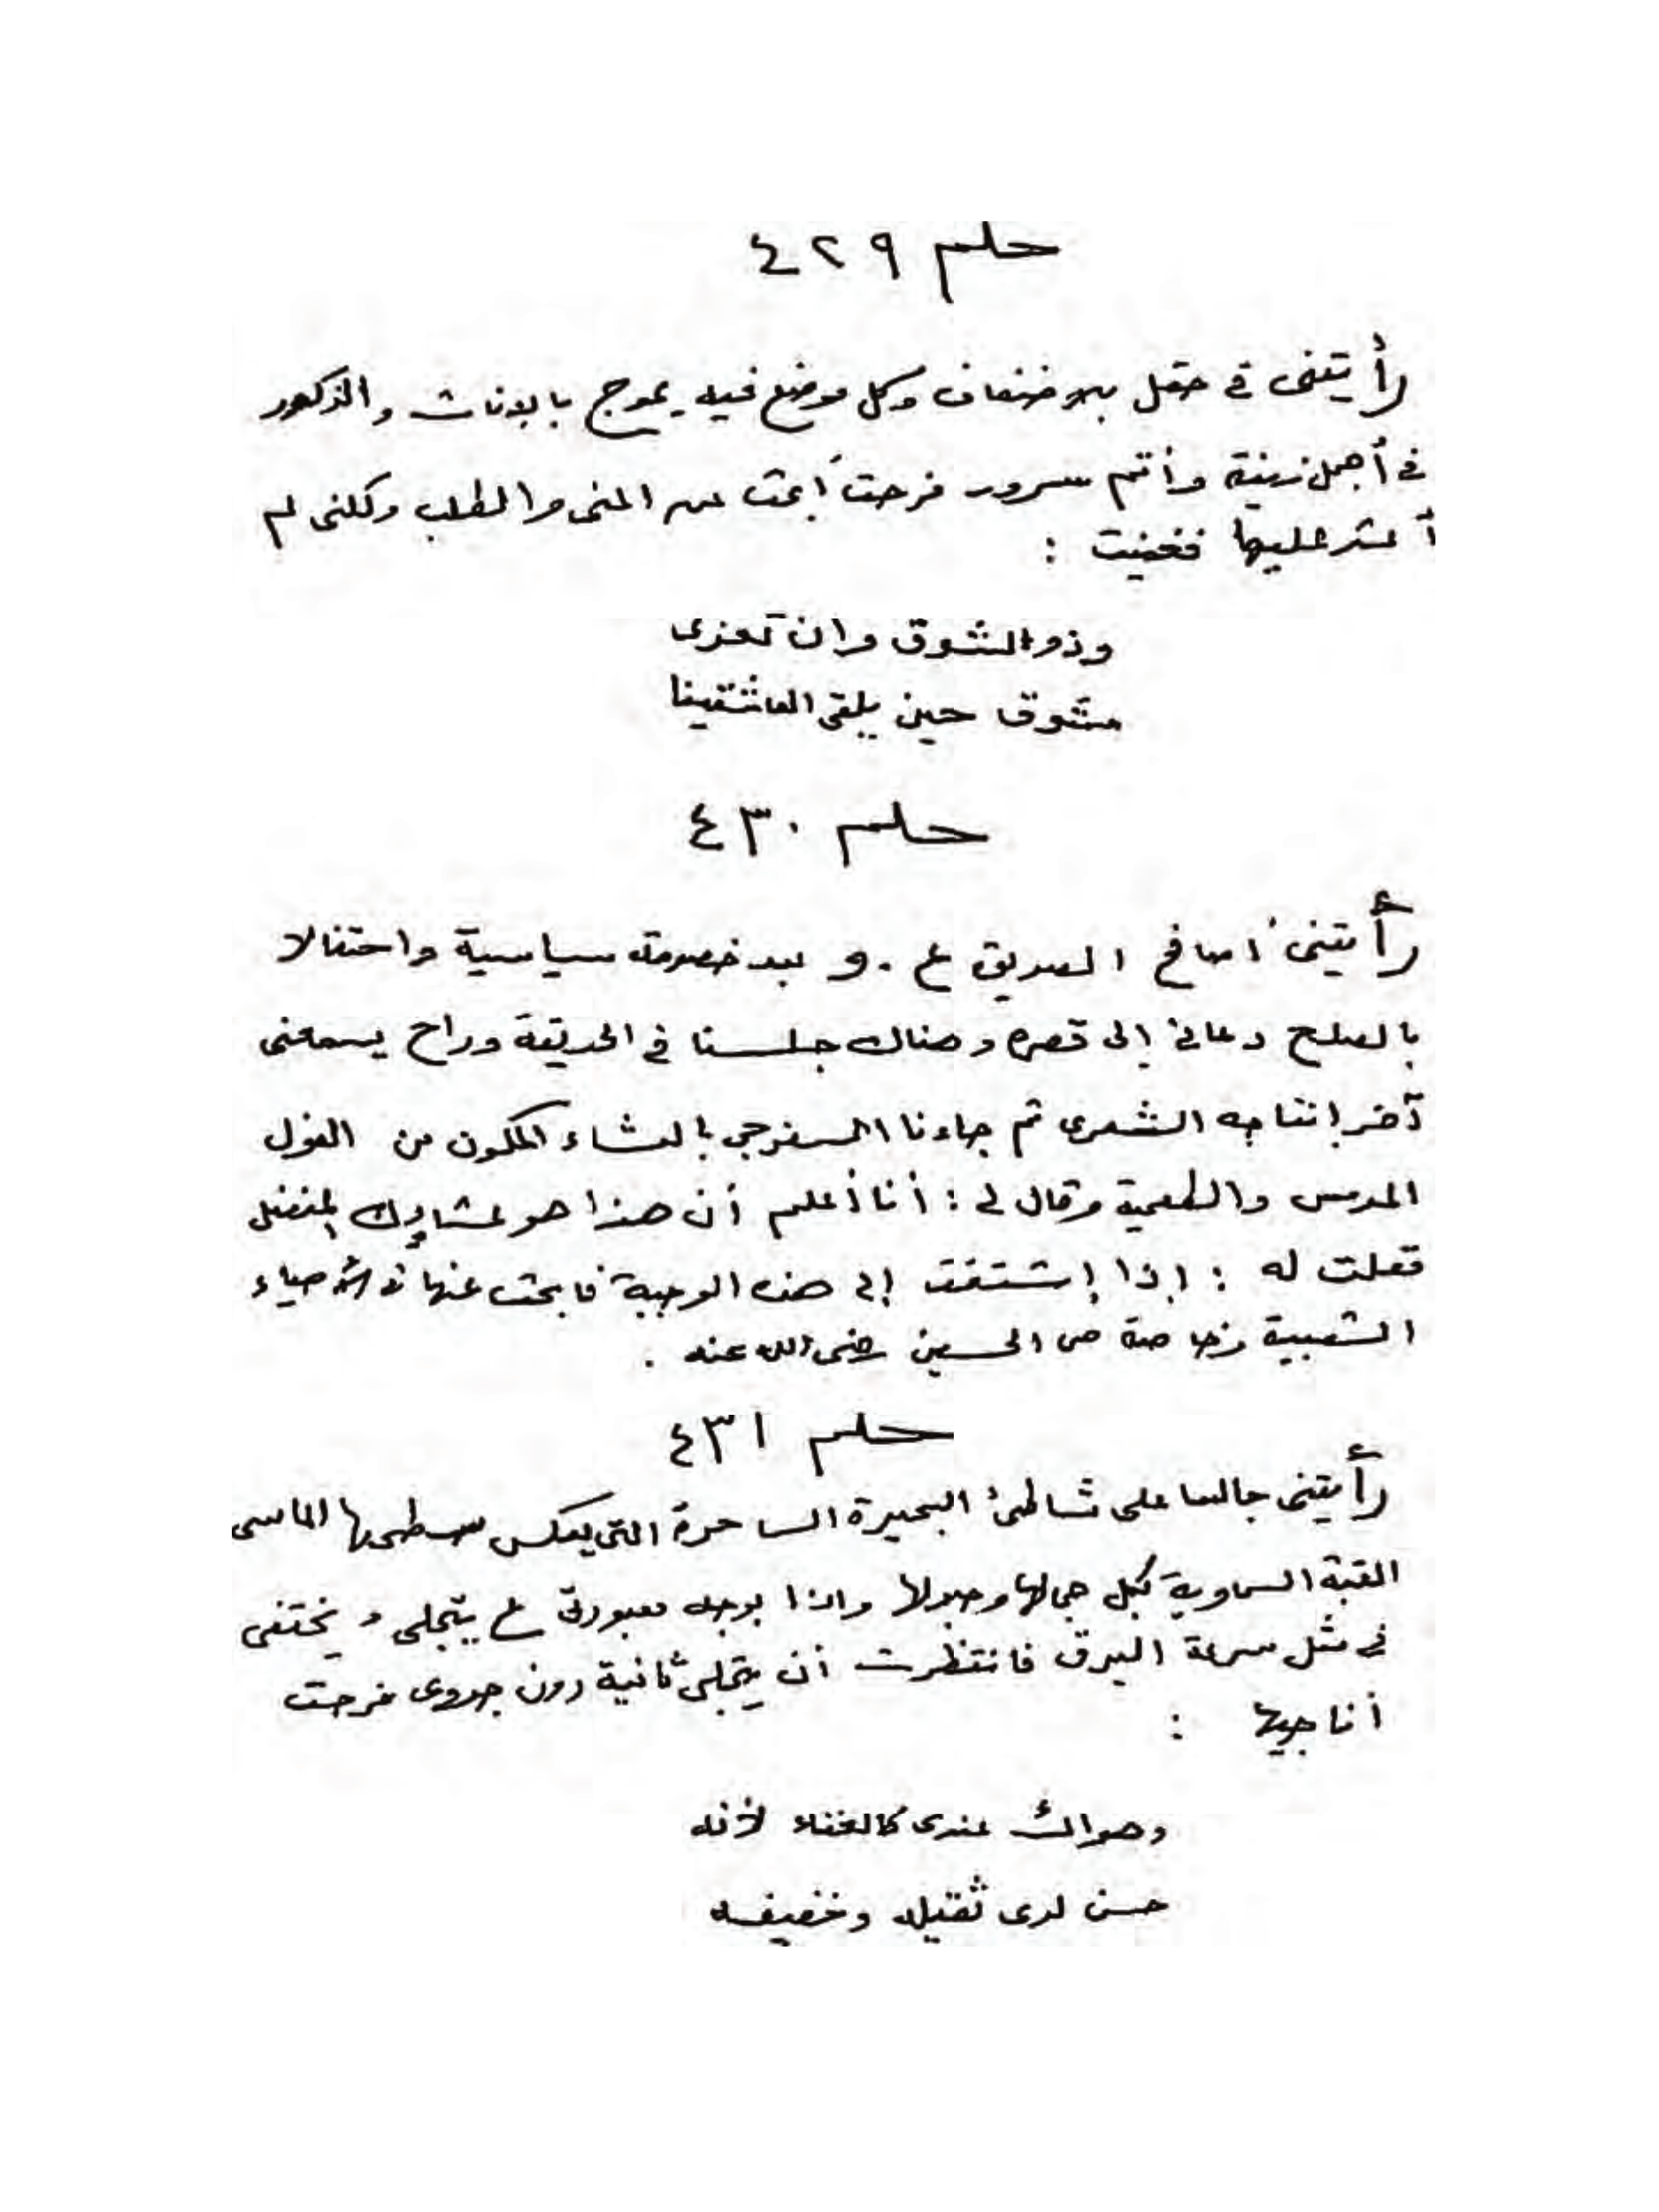 حلم ٤٢٩
رأيتنى فى حقل بلا ضفاف وكل موضع فيه يموج بالإناث والذكور
فى أجمل زينة وأتم سرور فرحت أبحث عن المنى والطلب ولكنى لم
أعثر عليها فغنيت :
وذو الشوق وان تعزى
مشوق حين يلقى العاشقينا
حلم ٤٣٠
رأيتنى أصافح الصديق ع . و بعد خصومة سياسية واحتفالا
بالصلح دعانى إلى قصره وهناك جلسنا فى الحديقة وراح يسمعنى
آخر إنتاجه الشعرى ثم جاءنا السفرجي بالعشاء المكون من الفول
المدمس والطعمية وقال لى : أنا أعلم أن هذا هو عشاؤك المفضل
فقلت له : إذا إشتقت إلى هذه الوجبة فابحث عنها فى الأحياء
الشعبية وخاصة حى الحسين رضى الله عنه .
حلم ٤٣١
رأيتنى جالسا على شاطئ البحيرة الساحرة التى يعكس سطحها الماسى
القبة السماوية بكل جمالها وجلالها واذا بوجه معبودتى ع يتجلى و يختفى
فى مثل سرعة البرق فانتظرت أن يتجلى ثانية دون جدوى فرحت
أناجيها :
وهواك عندى كالغناء لأنه
حسن لدى ثقيله وخفيفه